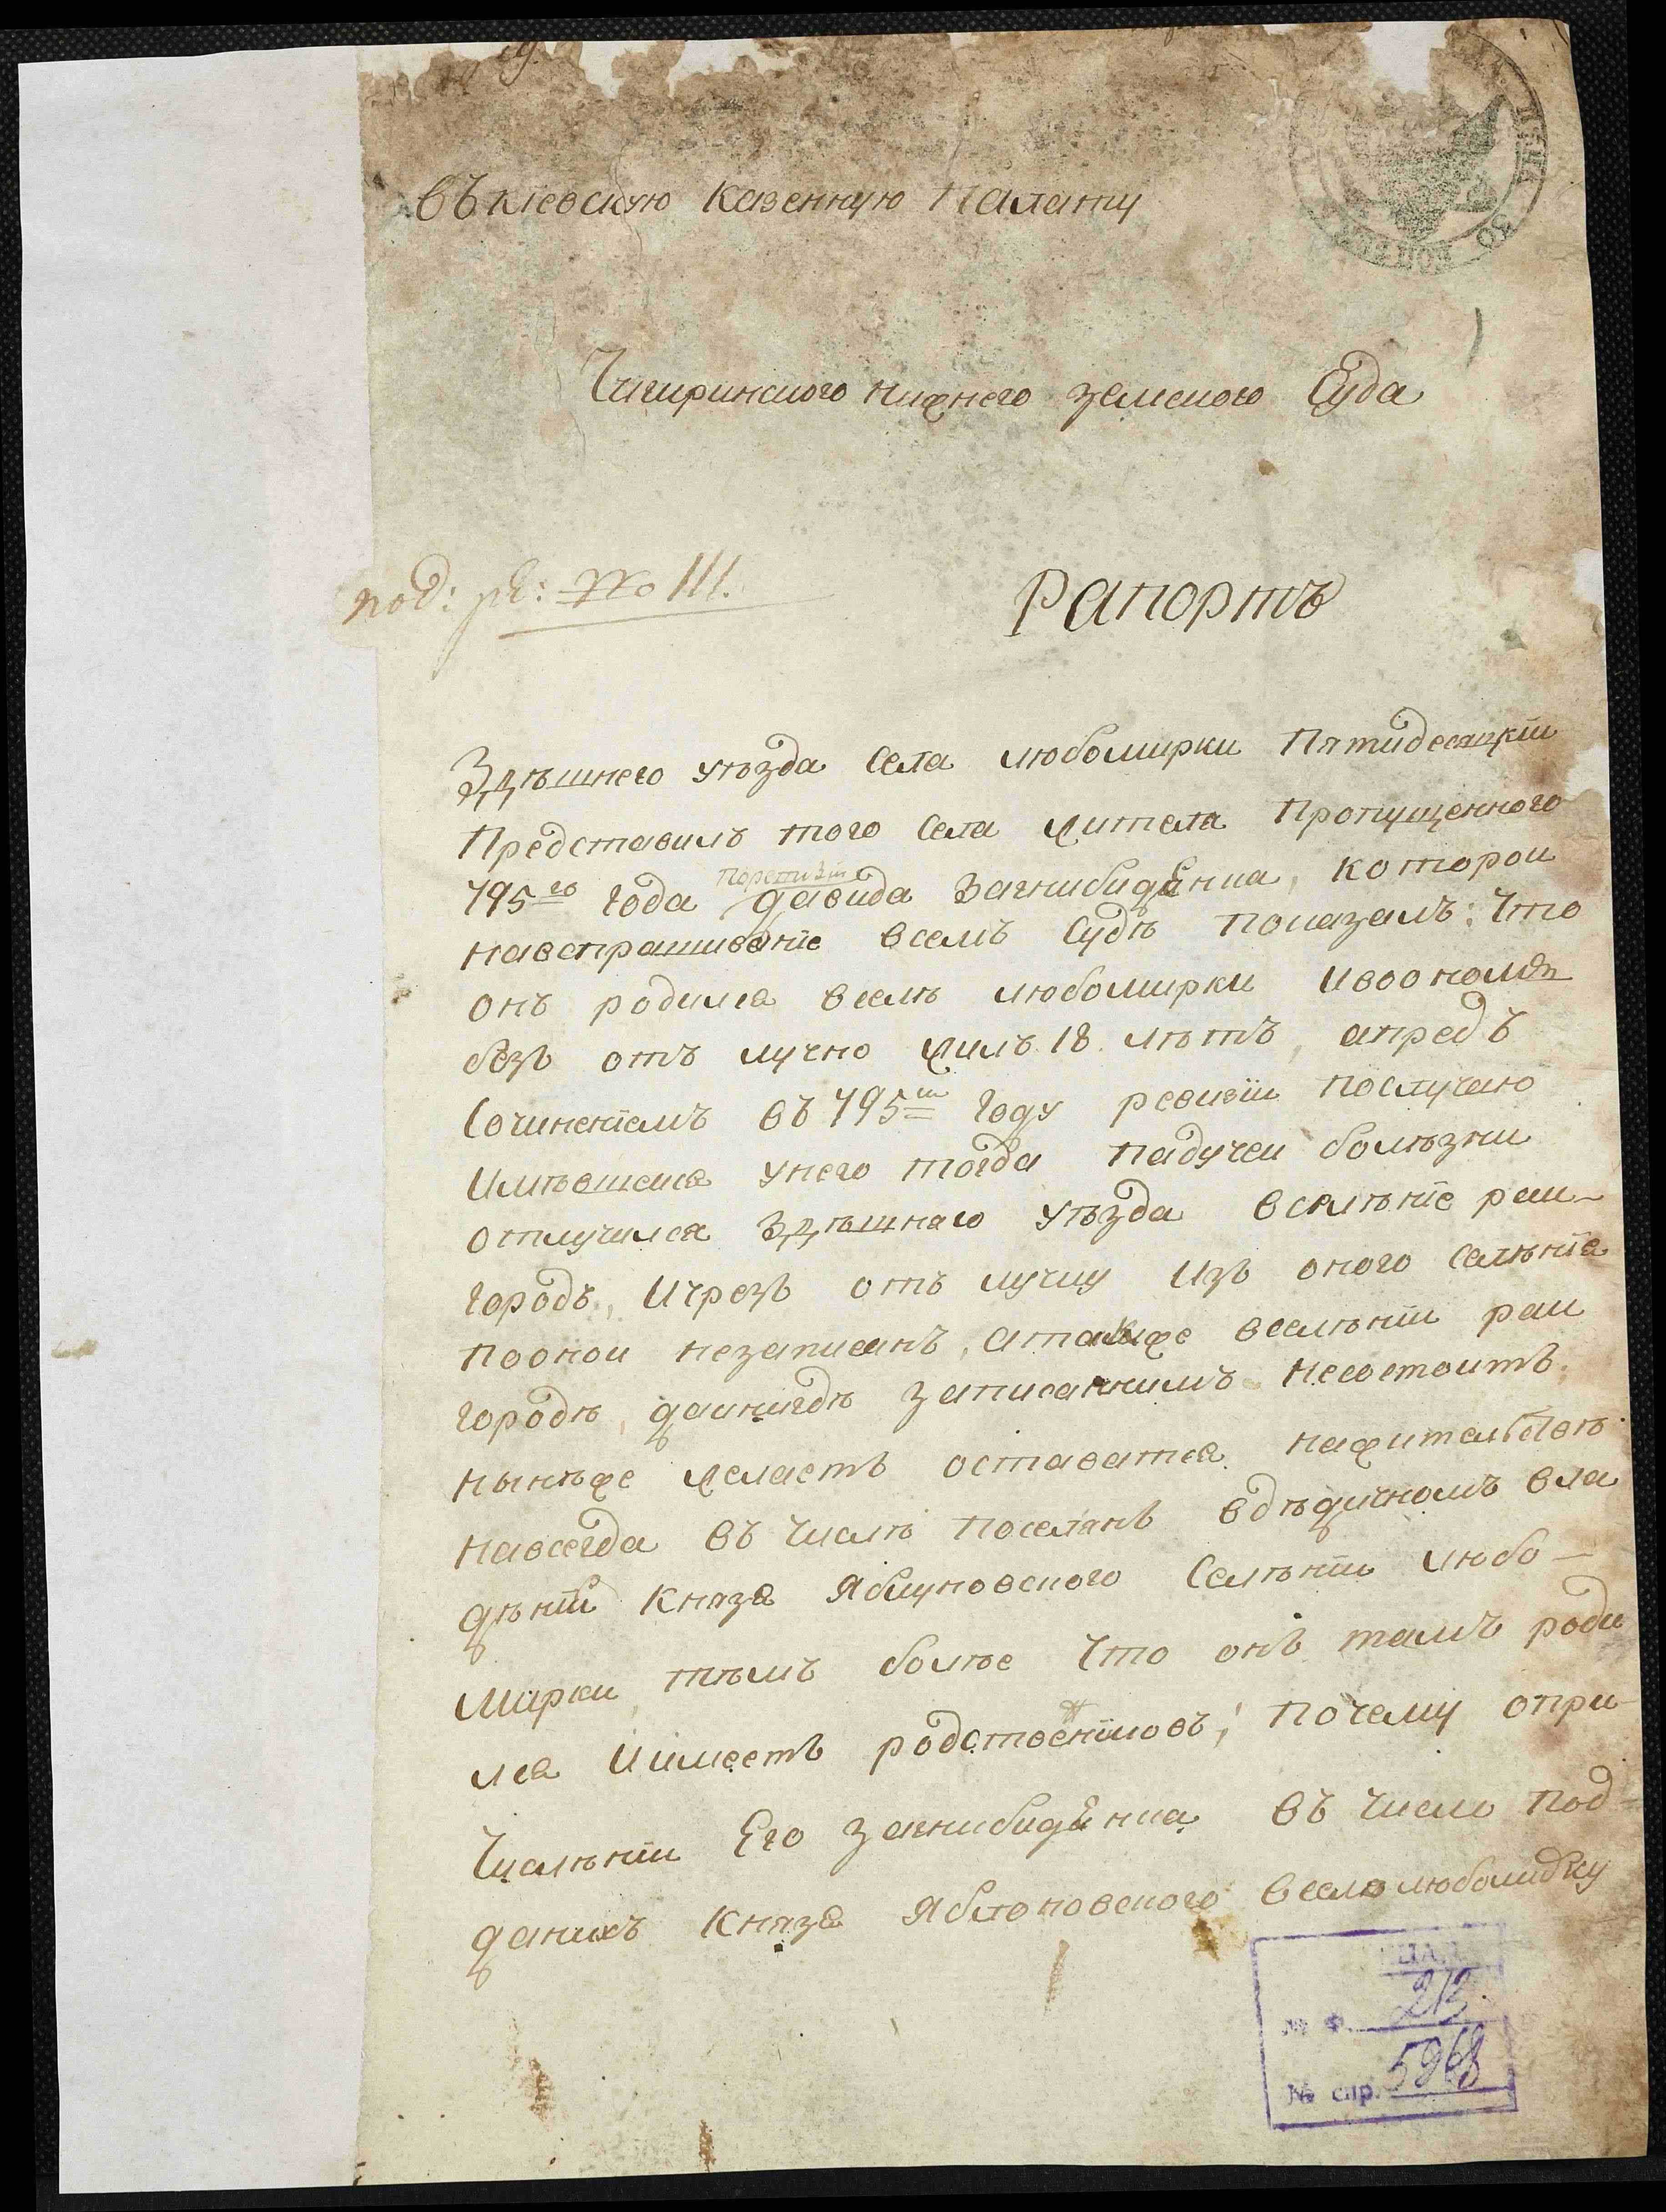 въ Кіевскую Казенную Палату
Чигиринского нижнего земского Суда
под: №о 111.
Рапортъ
Здѣшнего уѣзда села любомирки Пятидесяцкіи
Представилъ того села жителя Пропущенного
Поревизіи
795го года давида Загнибиденка, которои
навспрашиваніе всемъ Судѣ показалъ: Что
онъ родился вселѣ любомирки ивоономъ
безъ отъ лучно жилъ 18 лѣтъ, апредъ
Сочиненіемъ въ 795м году ревизіи послучаю
Имѣвшеися унего тогда падучеи болѣзни
отлучился Здѣшнаго уѣзда вселѣніе раи-
городъ, Ичрезъ отъ лучку Изъ оного селѣнія
Поонои незаписанъ, атакже вселѣніи раи
городѣ, данигдѣ записаннимъ несостоитъ.
нынѣже желаетъ оставатся нажителствѣ
навсегда въ числѣ поселянъ вдѣдичномъ вла
дѣніи Князя Яблуновского Селѣніи любо-
мирки, тѣмъ болѣе Что онъ тамъ роди
лся Иимеетъ родственіковъ; Почему опри-
Числѣніи Его Загнибиденка въ число под-
даныхъ Князя Яблоновского вселолюбомирку
ЦДІА
№ Ф. 213.
№ спр. 5968